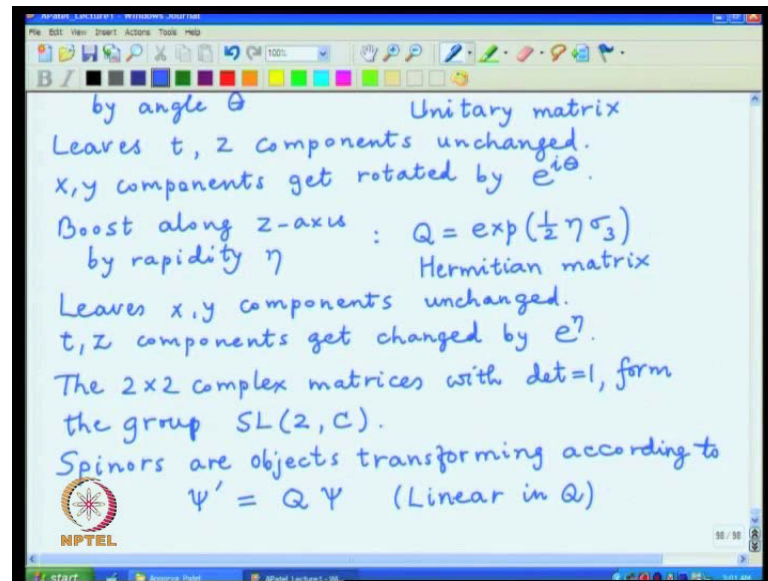 APatel_Lecture1 - Windows Journal
File Edit View Insert Actions Tools Help
100%
B I
by angle θ Unitary matrix
Leaves t, z components unchanged.
x,y components get rotated by e^{iθ}.
Boost along z-axis : Q = exp(½ η σ₃)
by rapidity η Hermitian matrix
Leaves x,y components unchanged.
t,z components get changed by e^η.
The 2×2 complex matrices with det=1, form
the group SL(2,C).
Spinors are objects transforming according to
Ψ' = Q Ψ (Linear in Q)
NPTEL
98 / 98
start Apoorva Patel APatel_Lecture1 - Wi... 3:01 AM